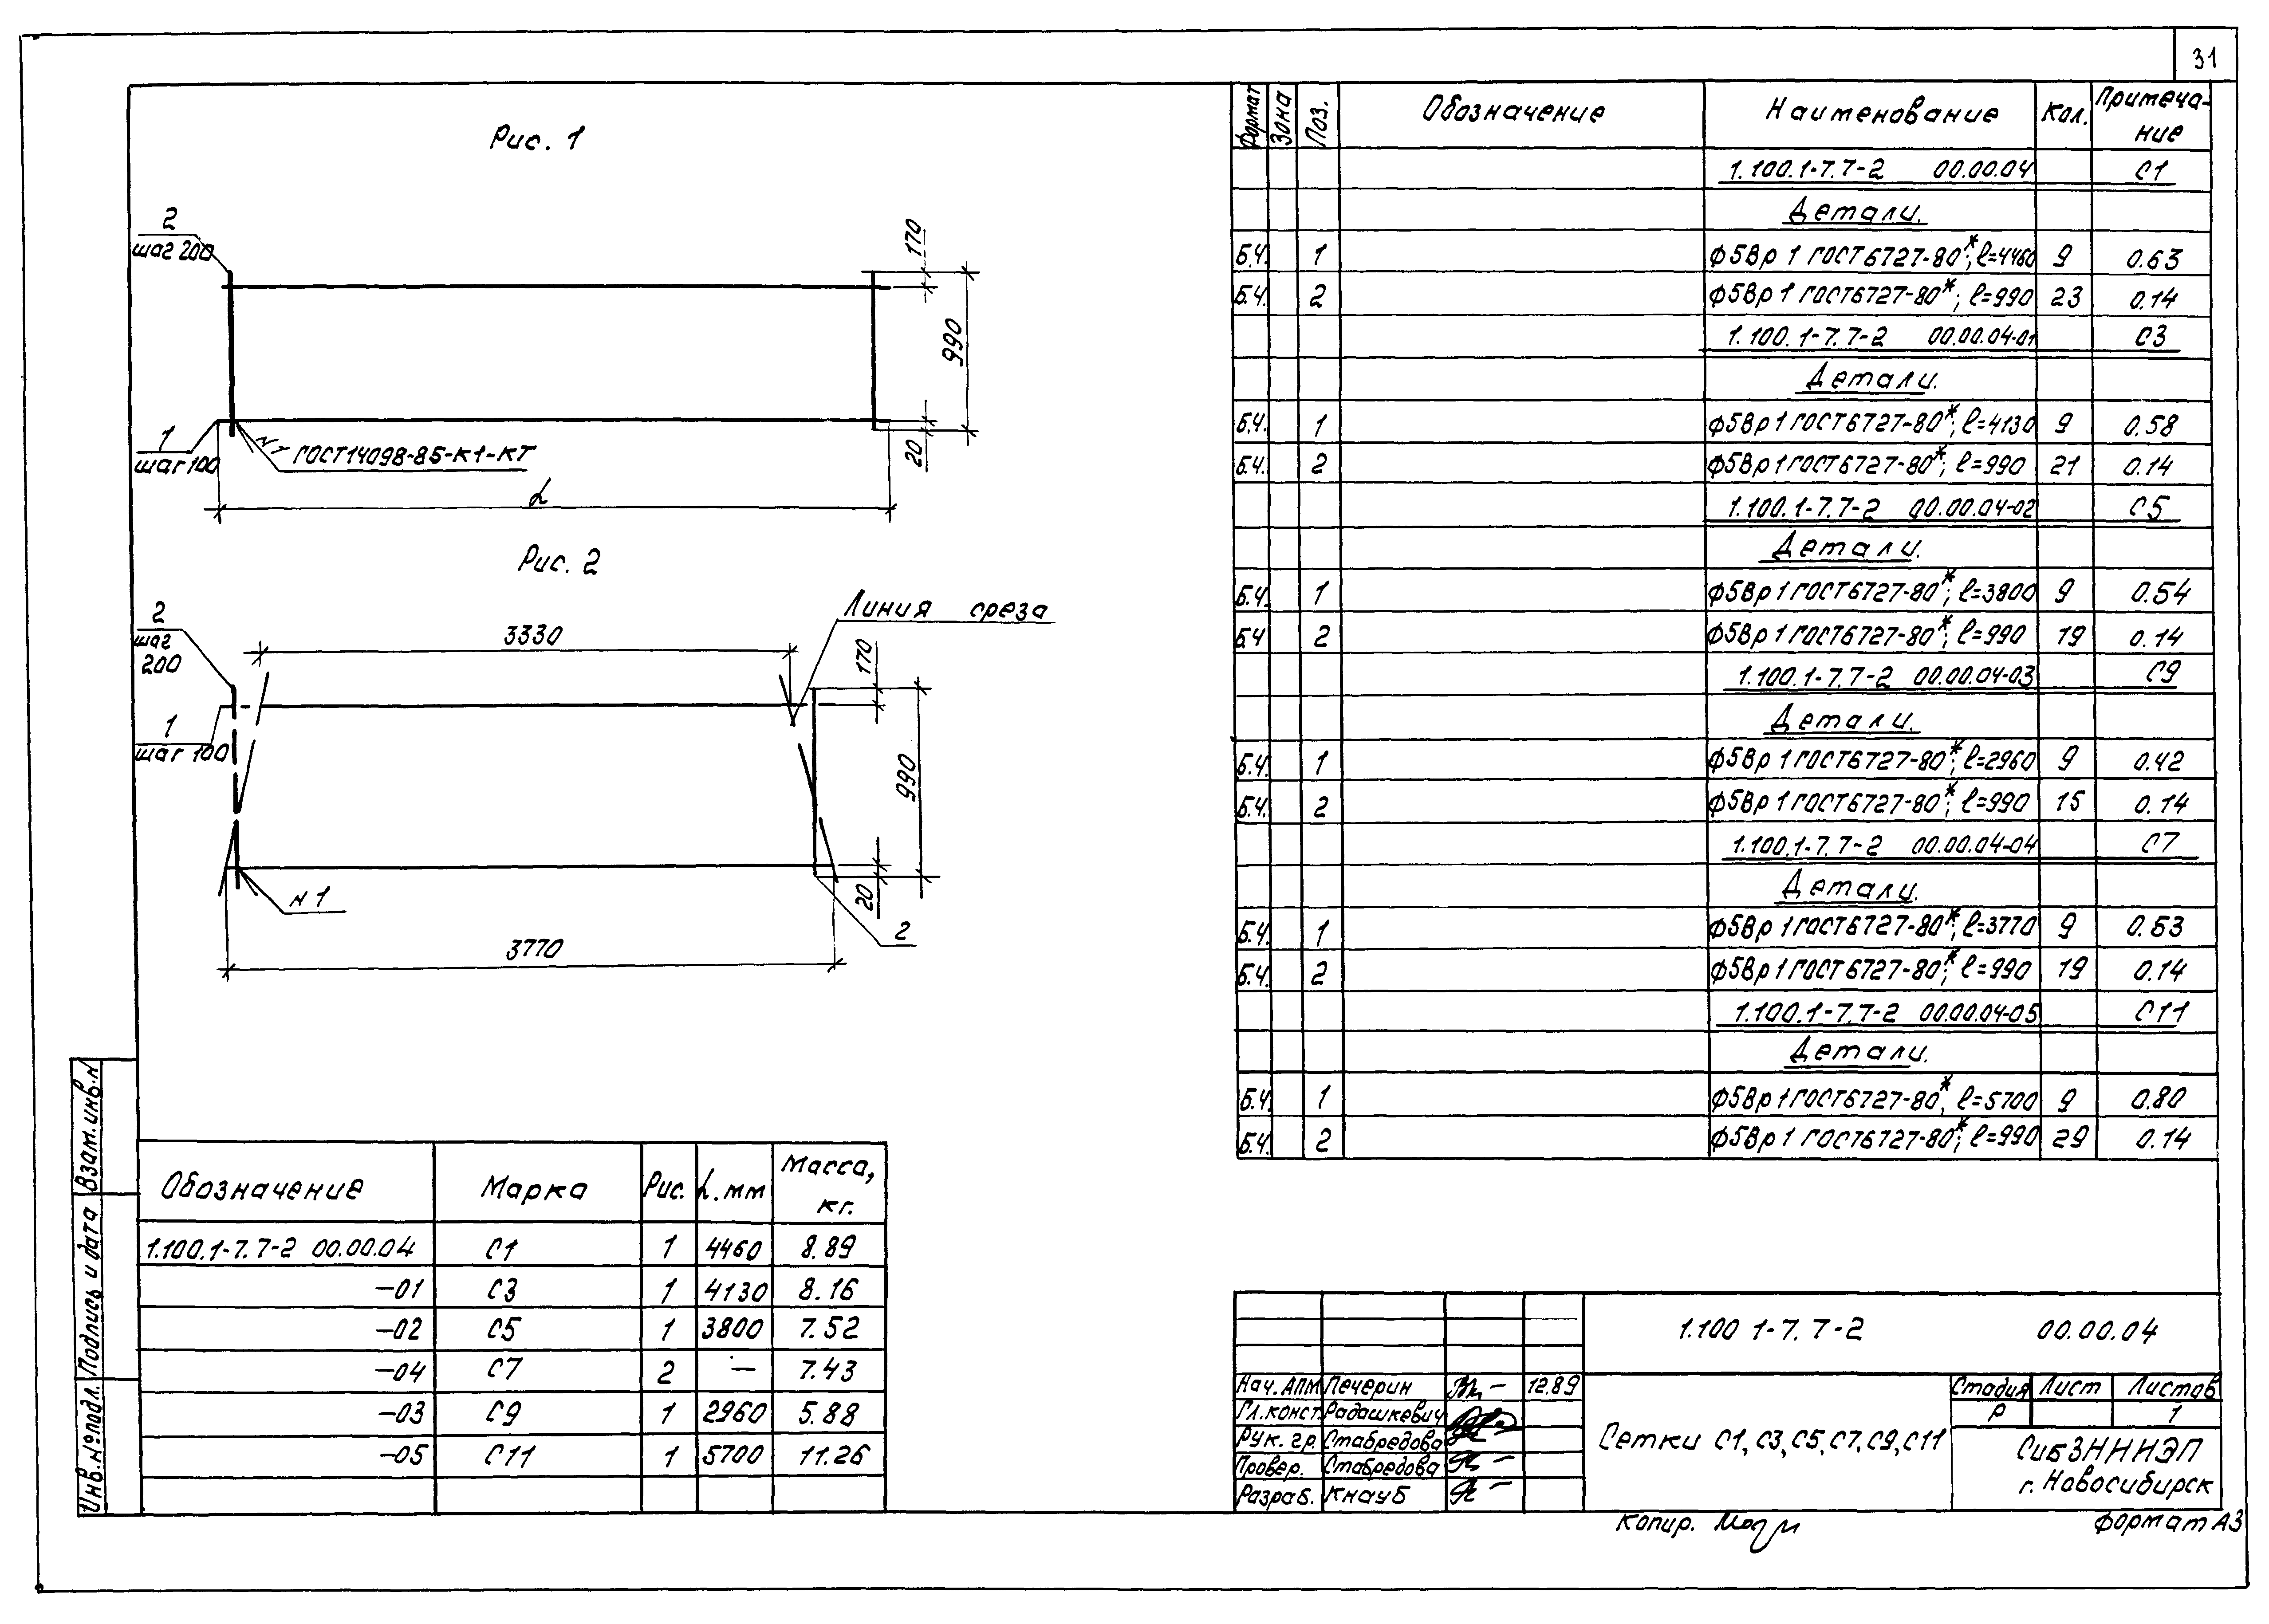 31
Рис. 1
2
шаг 200
170
990
20
1
шаг 100
ГОСТ14098-85-К1-КТ
L
Рис. 2
Линия среза
3330
2
шаг
200
170
1
шаг 100
990
20
N 1
2
3770
Обозначение Марка Рис. L.мм Масса, кг.
1.100.1-7.7-2 00.00.04 С1 1 4460 8.89
-01 С3 1 4130 8.16
-02 С5 1 3800 7.52
-04 С7 2 — 7.43
-03 С9 1 2960 5.88
-05 С11 1 5700 11.26
Формат Зона Поз. Обозначение Наименование Кол. Примеча-
ние
1.100.1-7.7-2 00.00.04 С1
Детали.
Б.Ч. 1 ф5Вр1 ГОСТ6727-80*; ℓ=4460 9 0.63
Б.Ч. 2 ф5Вр1 ГОСТ6727-80*; ℓ=990 23 0.14
1.100.1-7.7-2 00.00.04-01 С3
Детали.
Б.Ч. 1 ф5Вр1 ГОСТ6727-80*; ℓ=4130 9 0.58
Б.Ч. 2 ф5Вр1 ГОСТ6727-80*; ℓ=990 21 0.14
1.100.1-7.7-2 00.00.04-02 С5
Детали.
Б.Ч. 1 ф5Вр1 ГОСТ6727-80*; ℓ=3800 9 0.54
Б.Ч 2 ф5Вр1 ГОСТ6727-80*; ℓ=990 19 0.14
1.100.1-7.7-2 00.00.04-03 С9
Детали.
Б.Ч. 1 ф5Вр1 ГОСТ6727-80*; ℓ=2960 9 0.42
Б.Ч. 2 ф5Вр1 ГОСТ6727-80*; ℓ=990 15 0.14
1.100.1-7.7-2 00.00.04-04 С7
Детали.
Б.Ч. 1 ф5Вр1 ГОСТ6727-80*; ℓ=3770 9 0.53
Б.Ч. 2 ф5Вр1 ГОСТ6727-80*; ℓ=990 19 0.14
1.100.1-7.7-2 00.00.04-05 С11
Детали.
Б.Ч. 1 ф5Вр1 ГОСТ6727-80*, ℓ=5700 9 0.80
Б.Ч. 2 ф5Вр1 ГОСТ6727-80*; ℓ=990 29 0.14
1.100 1-7.7-2 00.00.04
Нач. АПМ Печерин 12.89
Гл.конст. Радашкевич
Рук. гр. Стабредова
Провер. Стабредова
Разраб. Кнауб
Сетки С1, С3, С5, С7, С9, С11
Стадия Лист Листов
Р 1
СибЗНИИЭП
г. Новосибирск
Копир.
Формат А3
Взам.инв.N
Подпись и дата
Инв.№подл.